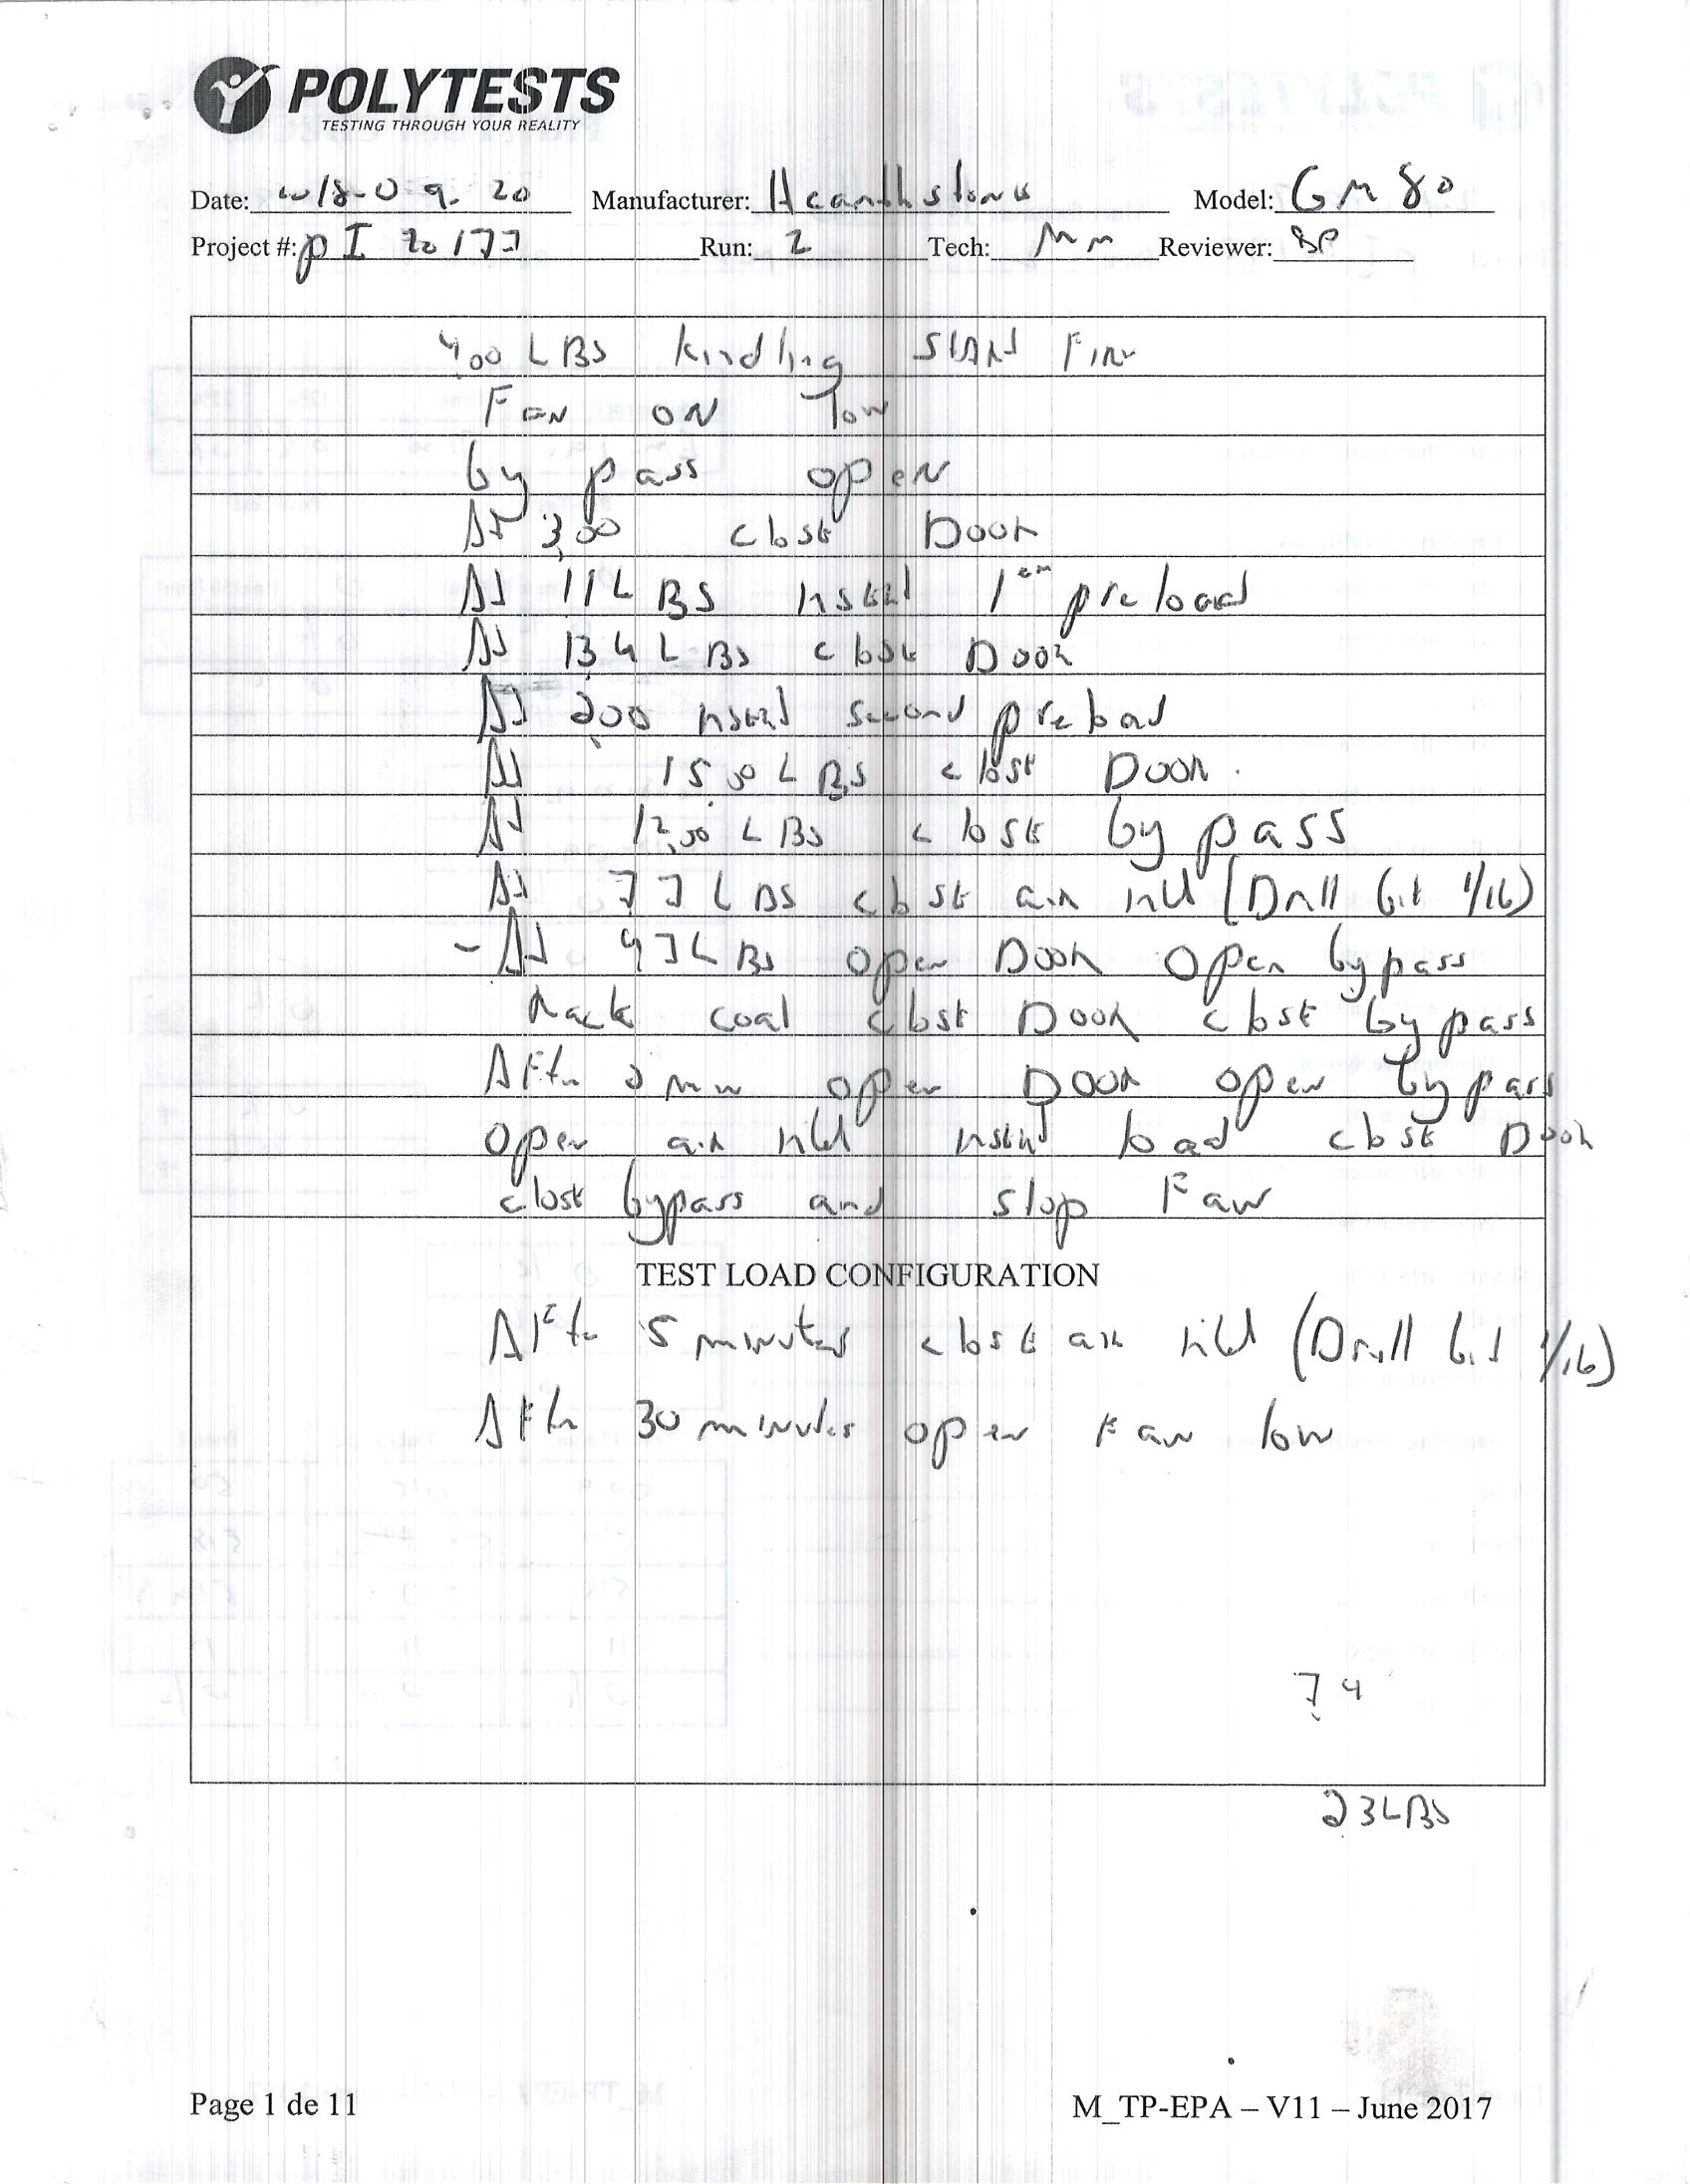 POLYTESTS
TESTING THROUGH YOUR REALITY
Date: 09. 20 Manufacturer: Hearthstone Model: GM 80
Project #: pI 20177 Run: 2 Tech: MM Reviewer: BP
400 LBS kindling START Fire
Fan ON low
by pass open
AT 3,00 close Door
At 11 LBS insert 1er preload
At 13 4 LBS close Door
At 200 insert second preload
At 15,00 LBS close Door
At 12,00 LBS close by pass
At 77 LBS close air inlet (Drill bit 1/16)
- At 47 LBS open Door open bypass
Rack coal close Door close by pass
After 2 min open Door open by pass
open air inlet insert load close Door
close bypass and stop Fan
TEST LOAD CONFIGURATION
After 5 minutes close air inlet (Drill bit 1/16)
After 30 minutes open Fan low
7 4
23 LBS
Page 1 de 11 M_TP-EPA – V11 – June 2017